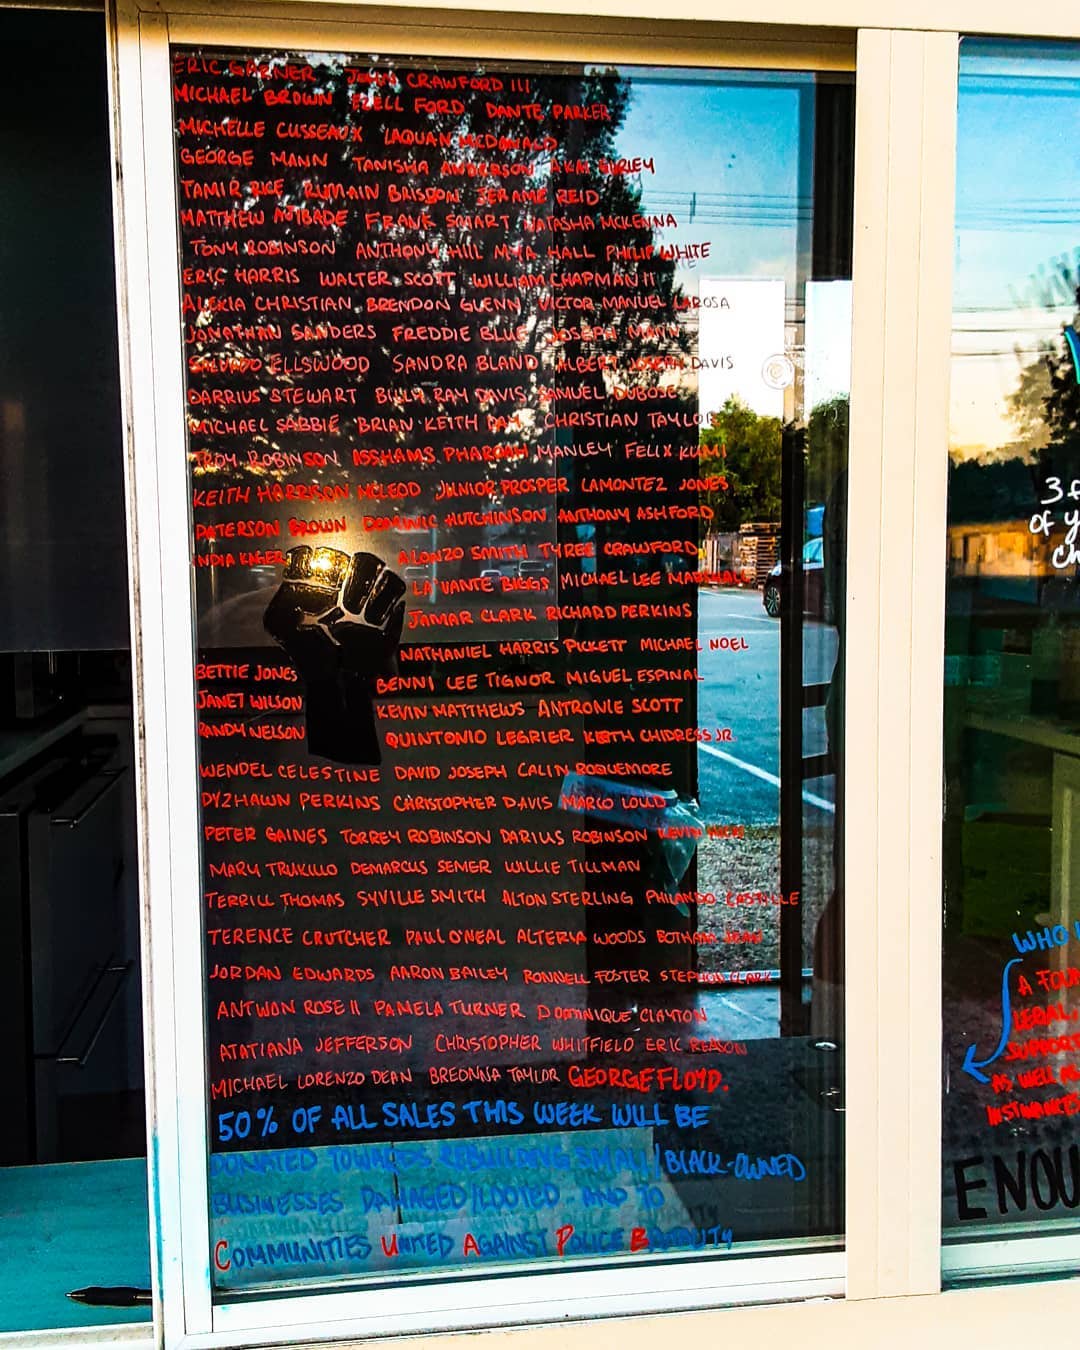 ERIC GARNER JOHN CRAWFORD III
MICHAEL BROWN EZELL FORD DANTE PARKER
MICHELLE CUSSEAUX LAQUAN MCDONALD
GEORGE MANN TANISHA ANDERSON AKAI GURLEY
TAMIR RICE RUMAIN BRISBON JERAME REID
MATTHEW AJIBADE FRANK SMART NATASHA MCKENNA
TONY ROBINSON ANTHONY HILL MYA HALL PHILIP WHITE
ERIC HARRIS WALTER SCOTT WILLIAM CHAPMAN II
ALEXIA CHRISTIAN BRENDON GLENN VICTOR MANUEL LAROSA
JONATHAN SANDERS FREDDIE BLUE JOSEPH MANN
SALVADO ELLSWOOD SANDRA BLAND ALBERT JOSEPH DAVIS
DARRIUS STEWART BILLY RAY DAVIS SAMUEL DUBOSE
MICHAEL SABBIE BRIAN KEITH DAY CHRISTIAN TAYLOR
TROY ROBINSON ASSHAMS PHAROAH MANLEY FELIX KUMI
KEITH HARRISON MCLEOD JUNIOR PROSPER LAMONTEZ JONES
PATERSON BROWN DOMINIC HUTCHINSON ANTHONY ASHFORD
INDIA KAGER ALONZO SMITH TYREE CRAWFORD
LA'VANTE BIGGS MICHAEL LEE MARSHALL
JAMAR CLARK RICHARD PERKINS
NATHANIEL HARRIS PICKETT MICHAEL NOEL
BETTIE JONES BENNI LEE TIGNOR MIGUEL ESPINAL
JANET WILSON KEVIN MATTHEWS ANTRONIE SCOTT
RANDY NELSON QUINTONIO LEGRIER KEITH CHIDRESS JR.
WENDEL CELESTINE DAVID JOSEPH CALIN ROQUEMORE
DYZHAWN PERKINS CHRISTOPHER DAVIS MARCO LOUD
PETER GAINES TORREY ROBINSON DARIUS ROBINSON KEVIN HICKS
MARY TRUXILLO DEMARCUS SEMER WILLIE TILLMAN
TERRILL THOMAS SYVILLE SMITH ALTON STERLING PHILANDO CASTILLE
TERENCE CRUTCHER PAUL O'NEAL ALTERIA WOODS BOTHAM JEAN
JORDAN EDWARDS AARON BAILEY RONNELL FOSTER STEPHON CLARK
ANTWON ROSE II PAMELA TURNER DOMINIQUE CLAYTON
ATATIANA JEFFERSON CHRISTOPHER WHITFIELD ERIC REASON
MICHAEL LORENZO DEAN BREONNA TAYLOR GEORGE FLOYD.
50% OF ALL SALES THIS WEEK WILL BE
DONATED TOWARDS REBUILDING SMALL/BLACK-OWNED
BUSINESSES DAMAGED/LOOTED AND TO
COMMUNITIES UNITED AGAINST POLICE BRUTALITY
OF
WHO
A
LEGAL,
SUPPORT
AS WELL AS
INSTANCES